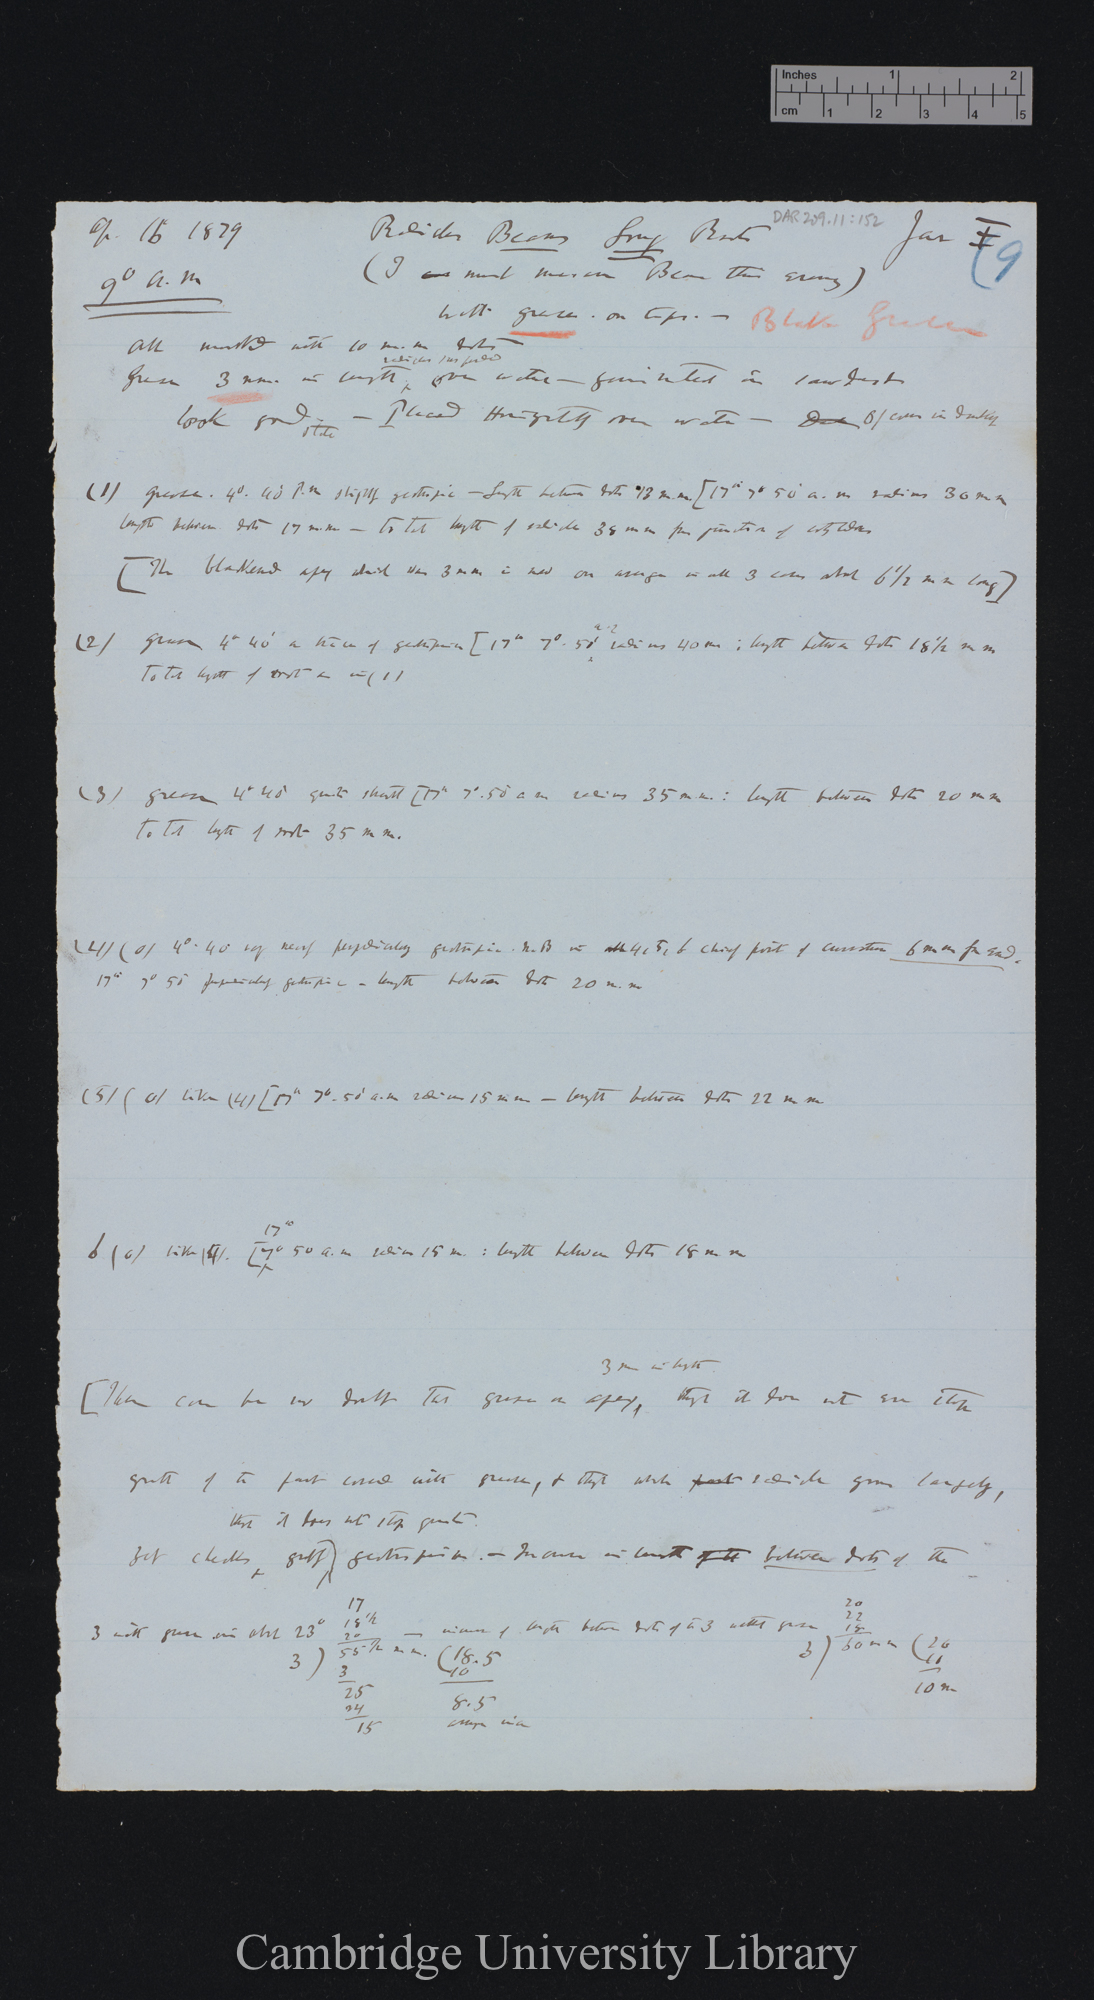 Inches 1 2
cm 1 2 3 4 5
DAR 209.11:152
Ap. 16 1879 Radicles Beans Long Roots Jar I (9
9° a.m (I must measure Bean this evening)
with grease on tips. — Black Grease
All marked with 10 m.m dots
Grease 3 mm. in length, over water — germinated in sawdust
look good — Placed Horizontally over water —
(1) grease. 4° 40' P.m slightly geotropic — length between dots 13 m.m [17th 7° 50' a.m radius 30 mm
length between dots 17 mm — total length of radicle 38 mm from junction of cotyledons
[The blackened apex which was 3 mm is now on average in all 3 cases about 6 1/2 mm long]
(2) grease 4° 40' a trace of geotropism [17th 7°. 50' radius 40 mm ; length between dots 18 1/2 m m
Total length of root as in (1)
(3) grease 4° 40' quite straight [17th 7°.50' a m radius 35 m m. : length between dots 20 m m
Total length of root 35 m m.
(4) (0) 4°. 40' very nearly perpendicularly geotropic. N.B in 4, 5, 6 chief part of curvature 6 mm from end.
17th 7° 50' perpendicularly geotropic — length between dots 20 m.m
(5) (0) like (4) [17th 7°. 50' a.m radius 15 m m — length between dots 22 m m
17th
6 (0) like (4). [7° 50' a.m radius 15 m. : length between dots 18 m m
3 mm in length
[There can be no doubt that grease on apex, though it does not even stop
growth of the part covered with grease, & though whole radicle grows largely,
that it does not stop growth.
yet checks geotropism. — Increase in length between dots of the
17 20
18 1/2 22
20 18
3 with grease in about 23° — increase of length between dots of the 3 without grease
3) 55 1/2 m m. (18.5 3) 60 m m (20
3 10 10
25 8.5 10 m
24
15
Cambridge University Library